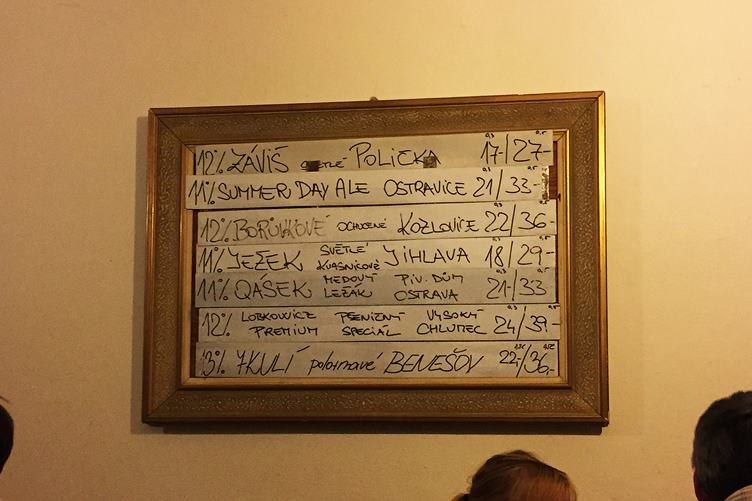 12% ZÁVIŠ SVĚTLÉ POLIČKA 0,3 17,-/27,- 0,5
11% SUMMER DAY ALE OSTRAVICE 21/33,-
12% BORŮVKOVÉ OCHUCENÉ KOZLOVICE 0,3 22/36,- 0,5
11% JEŽEK SVĚTLÉ KVASNICOVÉ JIHLAVA 0,3 18/29,- 0,5
11% QASEK MEDOVÝ LEŽÁK PIV. DŮM OSTRAVA 21/33
12% LOBKOWICZ PREMIUM PŠENIČNÝ SPECIÁL VYSOKÝ CHLUMEC 0,3 24/39,- 0,5
13% 7KULÍ polotmavé BENEŠOV 22,-/36,-